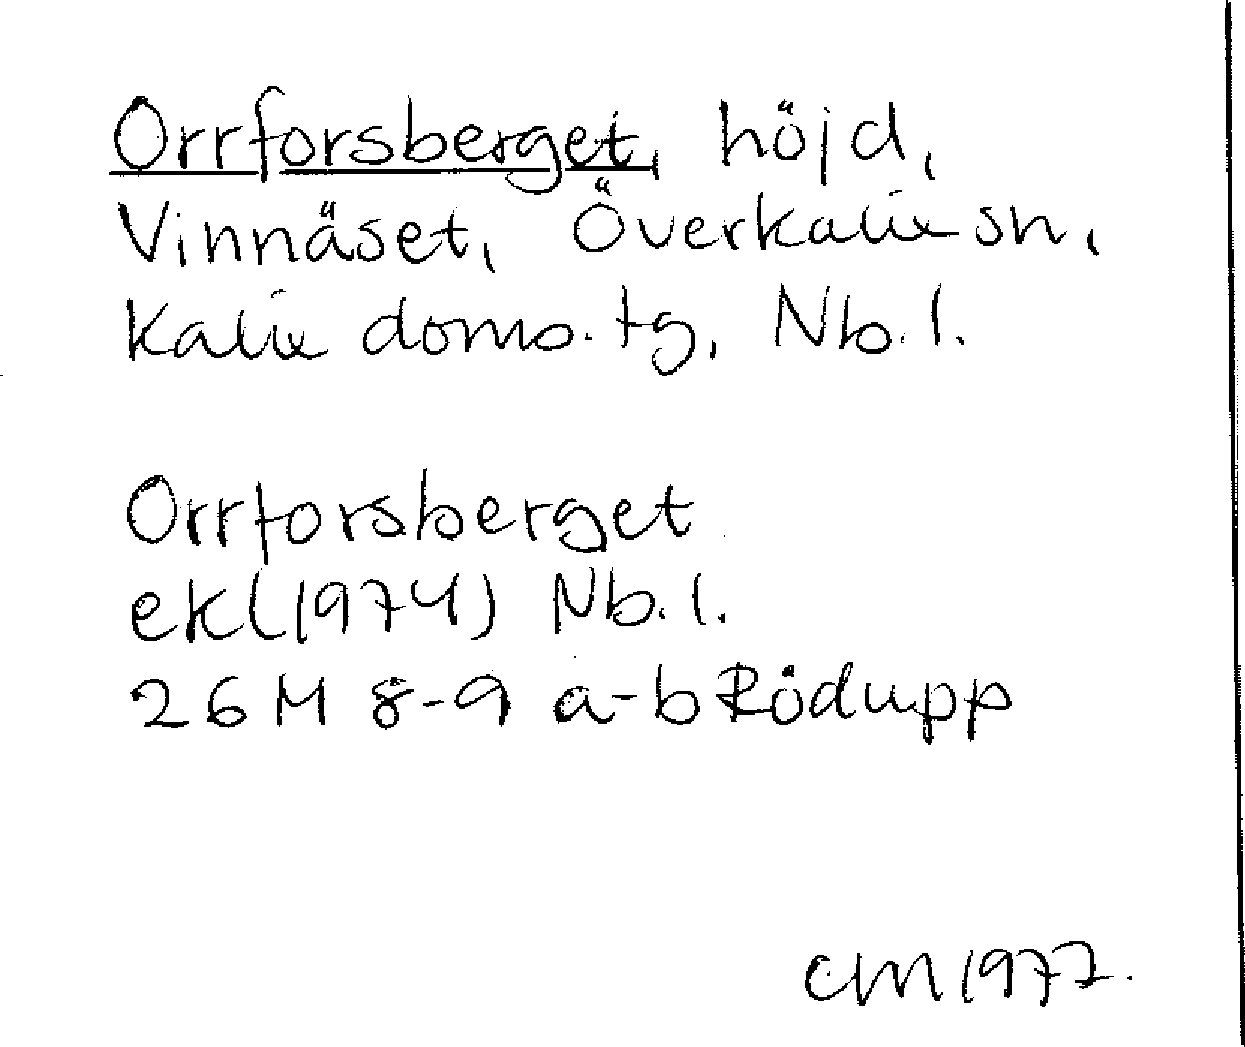 Orrforsberget, höjd,
Vinnäset, Överkalix sn,
Kalix doms. tg, Nb. l.
Orrforsberget
ekl(1974) Nb. l.
26 M 8-9 a-b Rödupp
CM 1977.